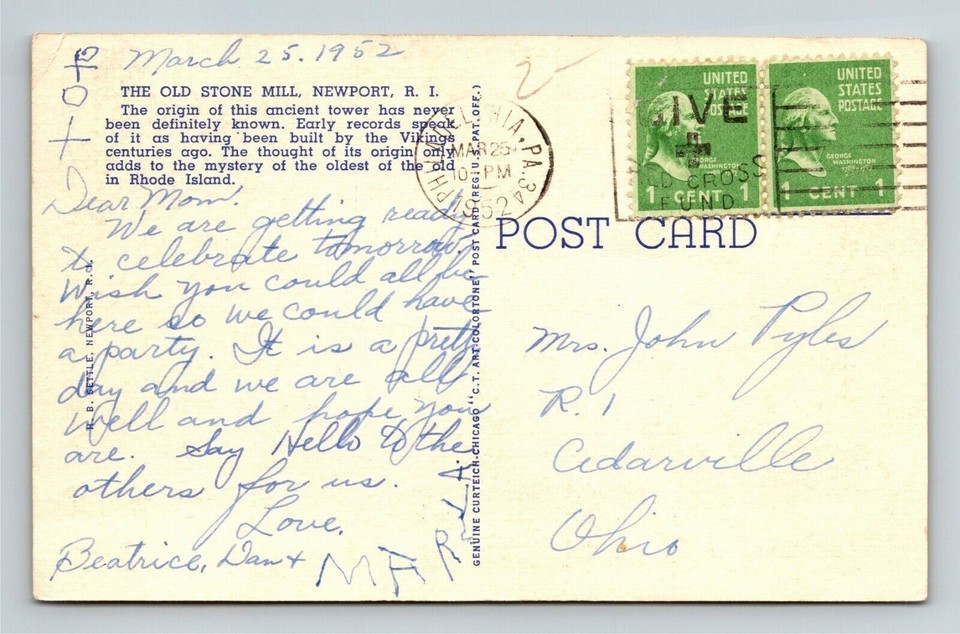 March 25. 1952
THE OLD STONE MILL, NEWPORT, R. I.
The origin of this ancient tower has never
been definitely known. Early records speak
of it as having been built by the Vikings
centuries ago. The thought of its origin only
adds to the mystery of the oldest of the old
in Rhode Island.
Dear Mom!
We are getting ready
to celebrate tomorrow.
Wish you could all be
here so we could have
a party. It is a pretty
day and we are all
well and hope you
are. Say Hello to the
others for us.
Love,
Beatrice, Dan +
MARLA
R. B. SETTLE, NEWPORT, R. I.
GENUINE CURTEICH-CHICAGO "C.T. ART-COLORTONE" POST CARD (REG. U.S. PAT. OFF.)
PHILADELPHIA, PA. 34
MAR 25
PM
1952
GIVE
RED CROSS
FUND
UNITED
STATES
POSTAGE
GEORGE
WASHINGTON
1 CENT 1
UNITED
STATES
POSTAGE
GEORGE
WASHINGTON
1 CENT 1
POST CARD
Mrs. John Pyles
R. 1
Cedarville
Ohio